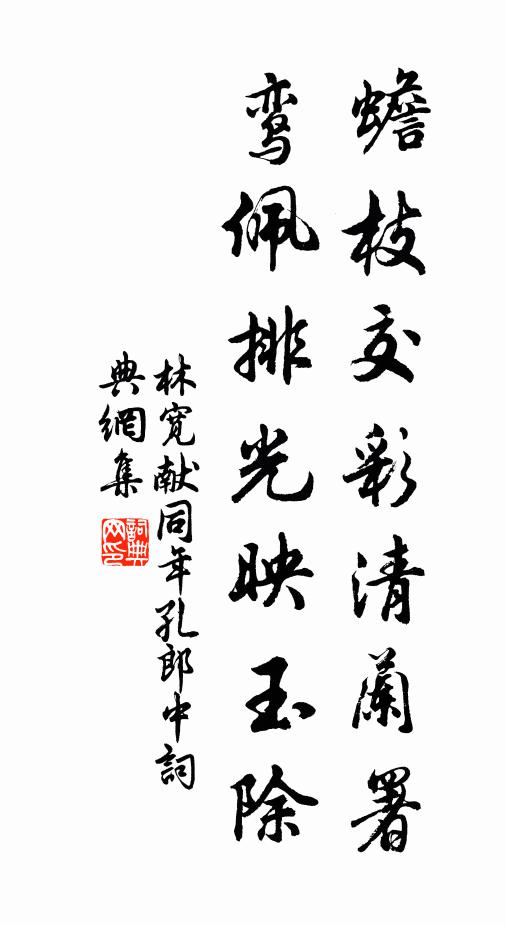 蟾枝交彩清蘭署
鸾佩排光映玉除
林寬献同年孔郎中詞
典網集
詞典网印